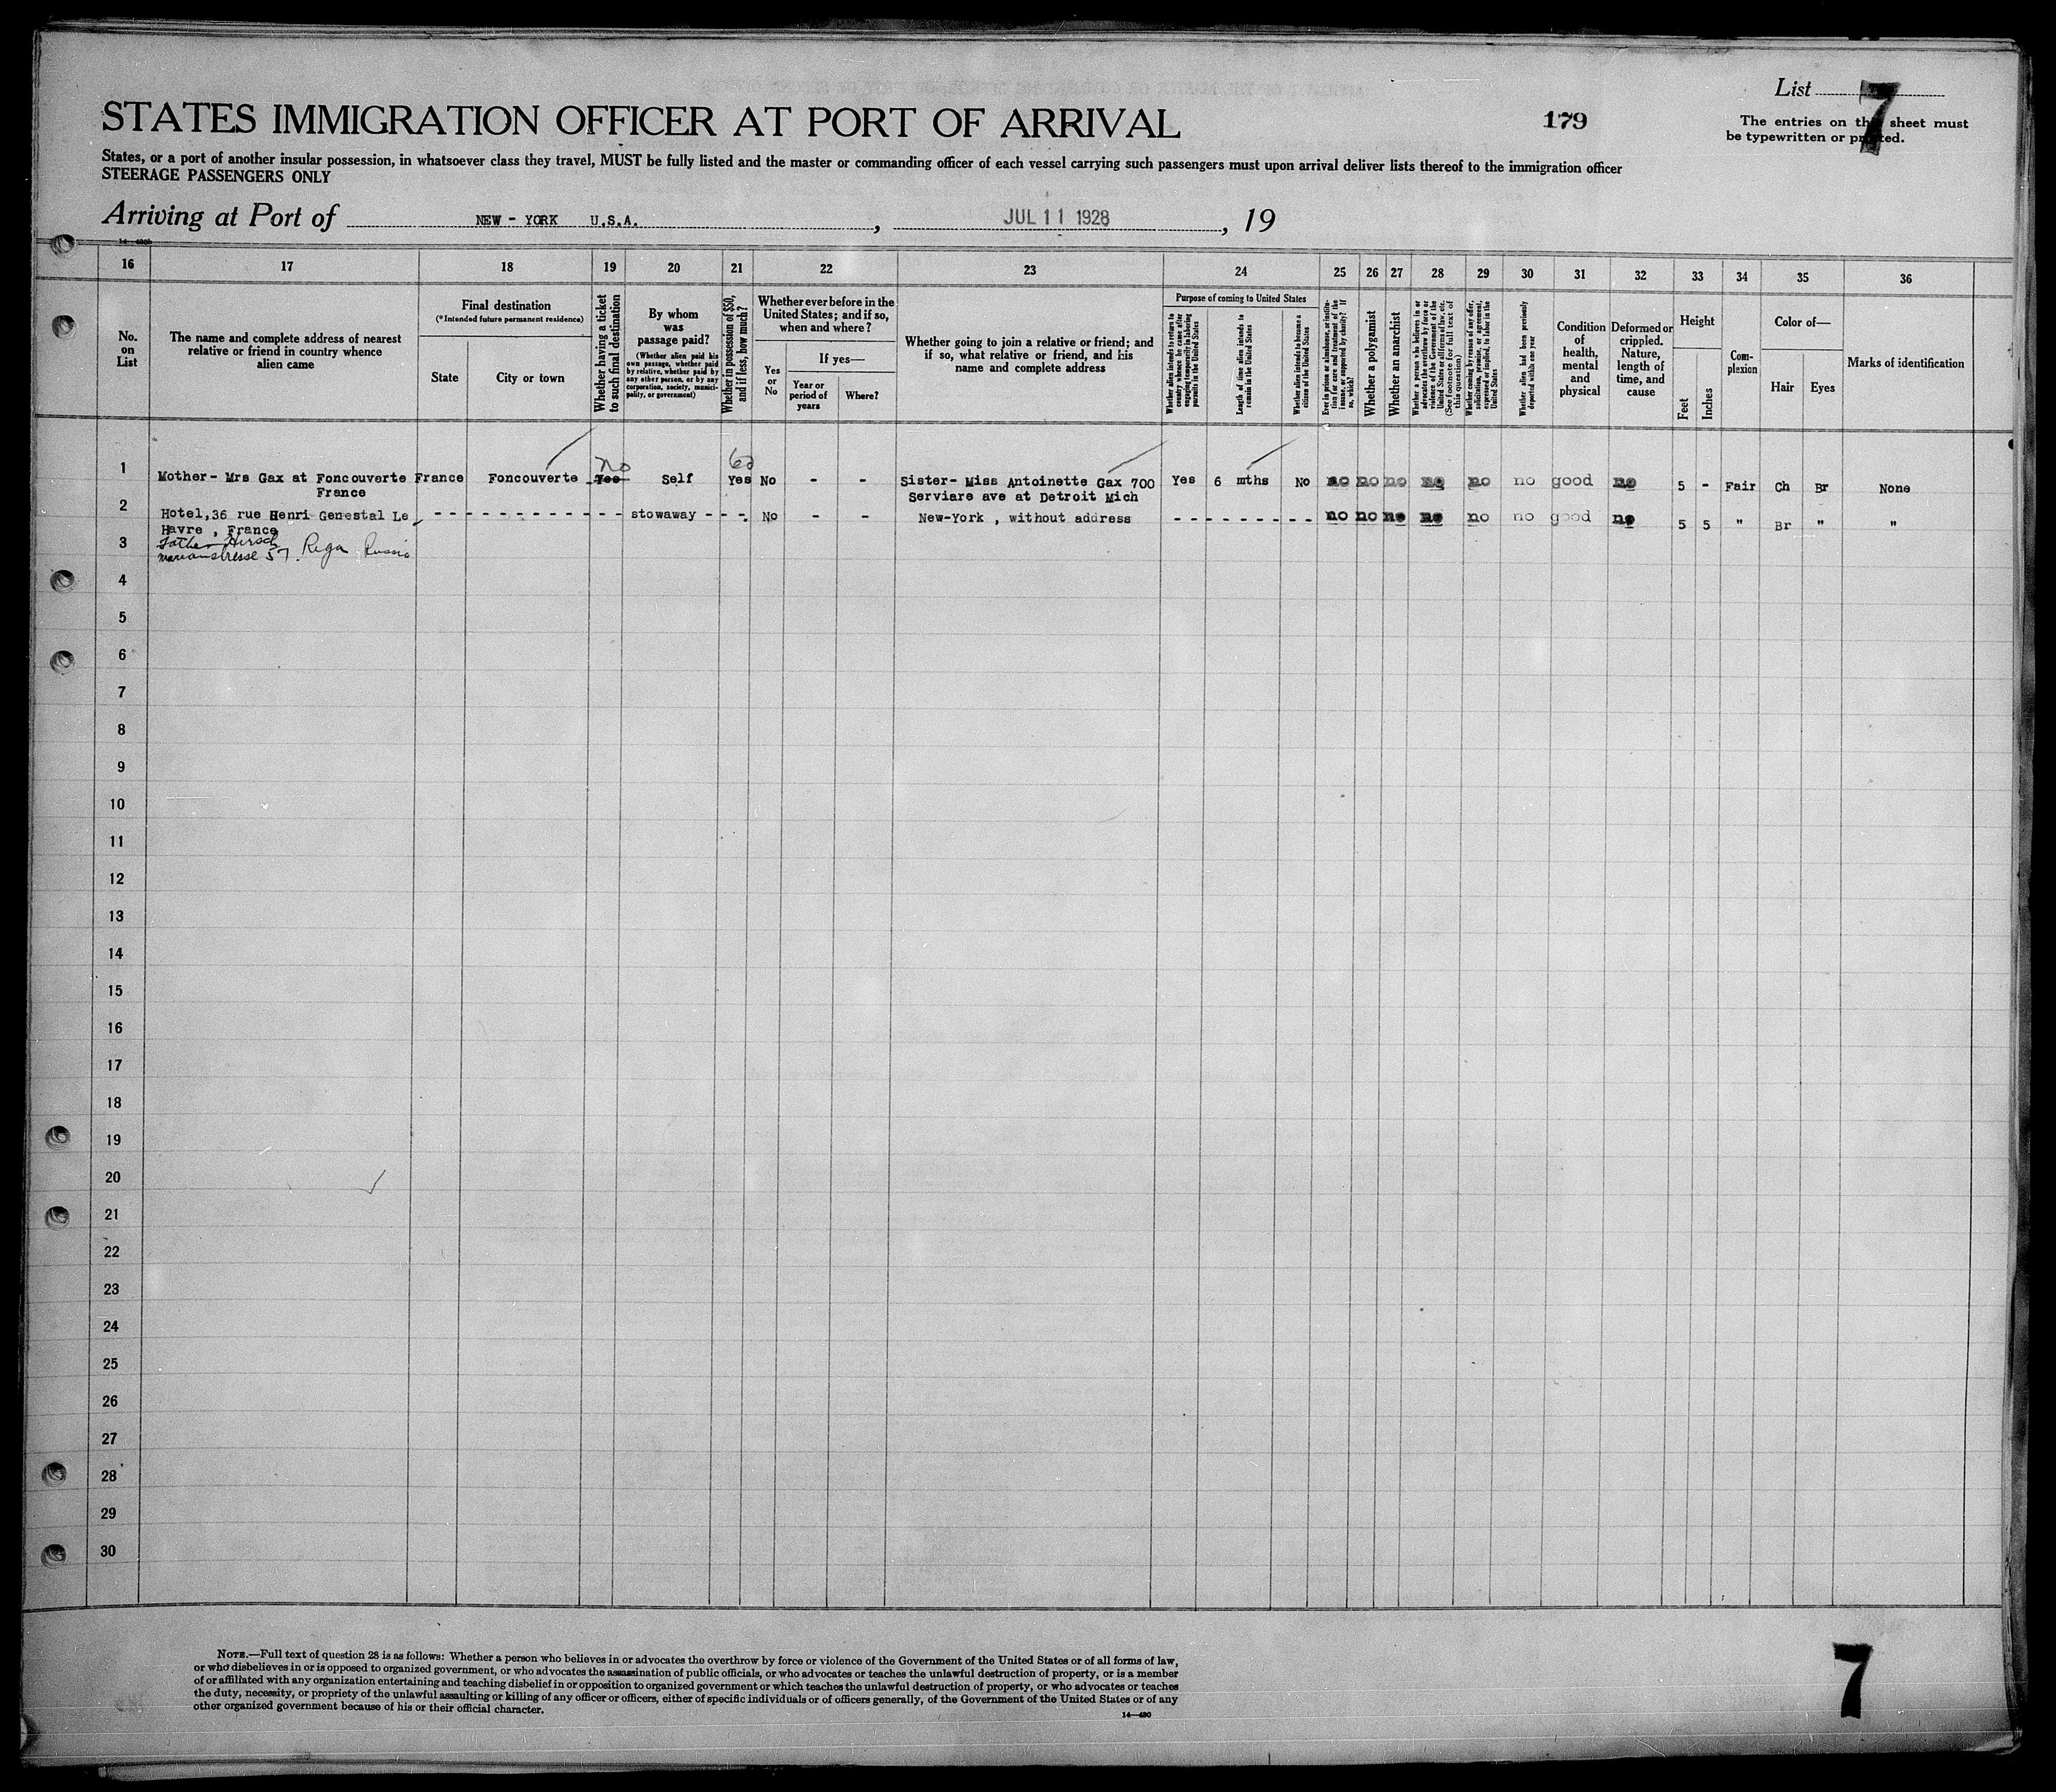 List 7
STATES IMMIGRATION OFFICER AT PORT OF ARRIVAL
179
The entries on this sheet must
be typewritten or printed.
States, or a port of another insular possession, in whatsoever class they travel, MUST be fully listed and the master or commanding officer of each vessel carrying such passengers must upon arrival deliver lists thereof to the immigration officer
STEERAGE PASSENGERS ONLY
Arriving at Port of NEW - YORK U.S.A. , JUL 11 1928 , 19
16 17 18 19 20 21 22 23 24 25 26 27 28 29 30 31 32 33 34 35 36
No.
on
List
The name and complete address of nearest
relative or friend in country whence
alien came
Final destination
(*Intended future permanent residence)
State
City or town
Whether having a ticket
to such final destination
By whom
was
passage paid?
(Whether alien paid his
own passage, whether paid
by relative, whether paid by
any other person, or by any
corporation, society, munici-
pality, or government)
Whether in possession of $50,
and if less, how much?
Whether ever before in the
United States; and if so,
when and where?
Yes
or
No
If yes—
Year or
period of
years
Where?
Whether going to join a relative or friend; and
if so, what relative or friend, and his
name and complete address
Purpose of coming to United States
Whether alien intends to return to
country whence he came after
engaging temporarily in laboring
pursuits in the United States
Length of time alien intends to
remain in the United States
Whether alien intends to become a
citizen of the United States
Ever in prison or almshouse, or institu-
tion for care and treatment of the
insane, or supported by charity? If
so, which?
Whether a polygamist
Whether an anarchist
Whether a person who believes in or
advocates the overthrow by force or
violence of the Government of the
United States or all forms of law, etc.
(See footnote for full text of
this question)
Whether coming by reason of any offer,
solicitation, promise, or agreement,
expressed or implied, to labor in the
United States
Whether alien had been previously
deported within one year
Condition
of
health,
mental
and
physical
Deformed or
crippled.
Nature,
length of
time, and
cause
Height
Feet
Inches
Com-
plexion
Color of—
Hair
Eyes
Marks of identification
no 60
1 Mother- Mrs Gax at Foncouverte France Foncouverte Yes Self Yes No - - Sister- Miss Antoinette Gax 700 Yes 6 mths No no no no no no no good no 5 - Fair Ch Br None
France Serviare ave at Detroit Mich
2 Hotel,36 rue Henri Genestal Le - - - - - - - - - - - - stowaway - - - No - - New-York , without address - - - - - - - - no no no no no no good no 5 5 " Br " "
Havre , France
3 Father Hirsch
57. Riga Russia
4
5
6
7
8
9
10
11
12
13
14
15
16
17
18
19
20
21
22
23
24
25
26
27
28
29
30
NOTE.—Full text of question 28 is as follows: Whether a person who believes in or advocates the overthrow by force or violence of the Government of the United States or of all forms of law,
or who disbelieves in or is opposed to organized government, or who advocates the assassination of public officials, or who advocates or teaches the unlawful destruction of property, or is a member
of or affiliated with any organization entertaining and teaching disbelief in or opposition to organized government or which teaches the unlawful destruction of property, or who advocates or teaches
the duty, necessity, or propriety of the unlawful assaulting or killing of any officer or officers, either of specific individuals or of officers generally, of the Government of the United States or of any
other organized government because of his or their official character.
14—430
7